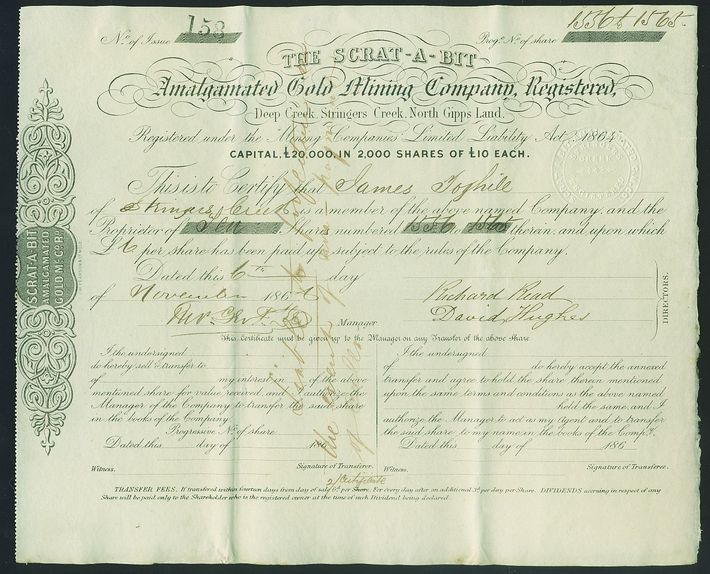 No. of Issue 153
Progve. No. of share 1556 to 1565
THE SCRAT-A-BIT
Amalgamated Gold Mining Company, Registered,
Deep Creek, Stringers Creek, North Gipps Land.
Registered under the Mining Companies' Limited Liability Act, 1864
CAPITAL, £20,000, IN 2,000 SHARES OF £10 EACH.
This is to Certify that James Tophile
of Stringers Creek is a member of the above named Company, and the
Proprietor of Ten Shares numbered 1556 1565 therein, and upon which
£ per share has been paid up, subject to the rules of the Company.
Dated this 6th day
of November 186
Richard Read
David Hughes
DIRECTORS.
Manager
This Certificate must be given up to the Manager on any Transfer of the above Share
I the undersigned
do hereby sell & transfer to
of my interest in of the above
mentioned share for value received, and I authorize the
Manager of the Company to transfer the said share
in the books of the Company.
Progressive No. of share
Dated this day of 186
Signature of Transferor.
Witness.
I the undersigned
of do hereby accept the annexed
transfer and agree to hold the share therein mentioned
upon the same terms and conditions as the above named
held the same, and I
authorize the Manager to act as my Agent and to transfer
the said share to my name in the books of the Compy.
Dated this day of 186
Signature of Transferee.
Witness.
certificate
TRANSFER FEES. If transferred within fourteen days from day of sale 6d. per Share; For every day after an additional 3d. per day per Share. DIVIDENDS accruing in respect of any
Share will be paid only to the Shareholder who is the registered owner at the time of such Dividend being declared.
SCRAT-A-BIT
AMALGAMATED
GOLD M. Co. Rd.